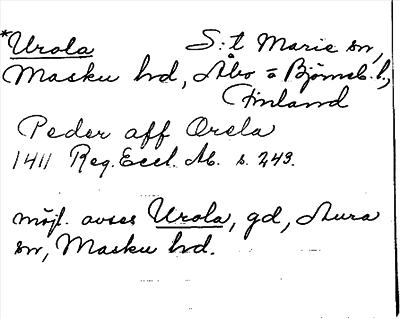 *Urola S:t Marie sn,
Masku hd, Åbo o Björneb. l.,
Finland
Peder aff Orela
1411 Reg. Eccl. Ab. s. 243.
möjl. avses Urola, gd, Aura
sn, Masku hd.